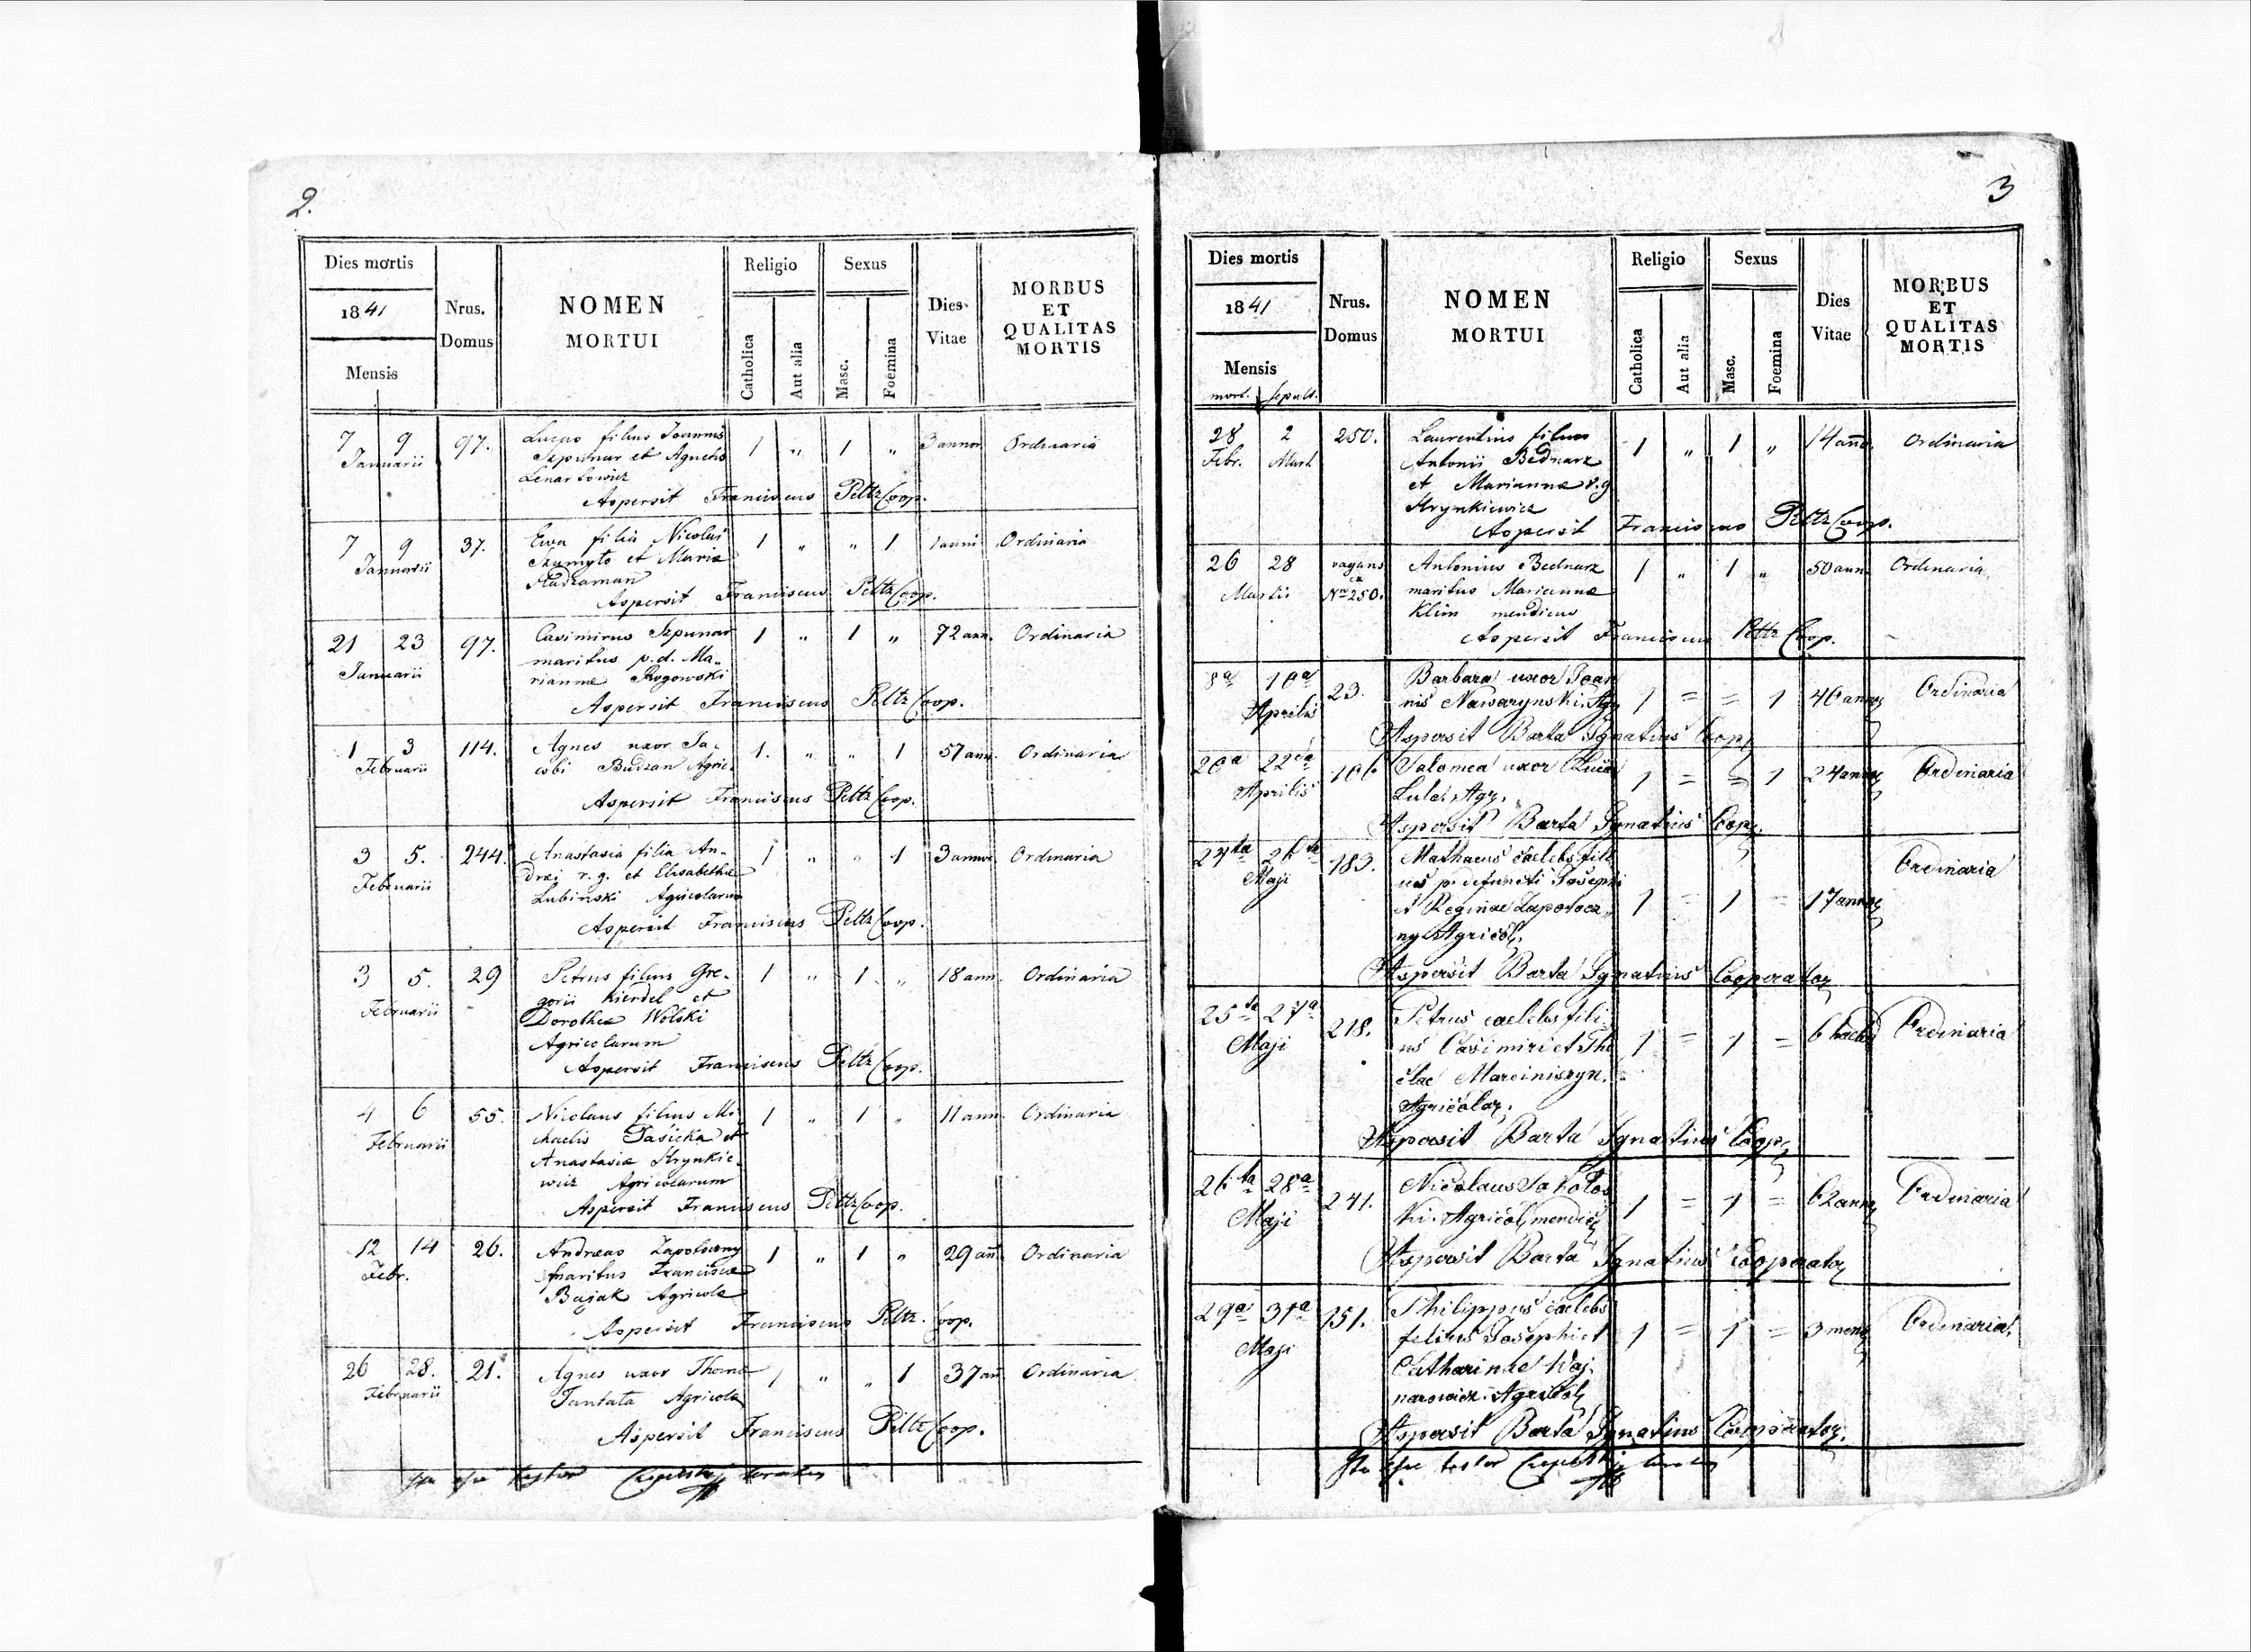 2.
Dies mortis
1841
Mensis
Nrus.
Domus
NOMEN
MORTUI
Religio
Catholica
Aut alia
Sexus
Masc.
Foemina
Dies
Vitae
MORBUS
ET
QUALITAS
MORTIS
7 9 97. filius Joannis 1 " 1 " 3 annor. Ordinaria
Januarii Szpunar et Agnetis
Lenartowicz
Aspersit Franciscus Peltz Coop.
7 9 37. Ewa filia Nicolai 1 " " 1 1 anni Ordinaria
Januarii Szumyło et Maria
Aspersit Franciscus Peltz Coop.
21 23 97. Casimirus Szpunar 1 " 1 " 72 ann. Ordinaria
Januarii maritus p.d. Ma-
riannæ Rogowski
Aspersit Franciscus Peltz Coop.
1 3 114. Agnes uxor Ja- 1. " " 1 57 ann. Ordinaria
Februarii cobi Budzan Agric.
Aspersit Franciscus Peltz Coop.
3 5. 244. Anastasia filia An- 1 " " 1 3 annor. Ordinaria
Februarii dræi r. g. et Elisabethæ
Lubinski Agricolarum
Aspersit Franciscus Peltz Coop.
3 5. 29 Petrus filius Gre- 1 " 1 " 18 ann. Ordinaria
Februarii gorii Kierdel et
Dorotheæ Wolski
Agricolarum
Aspersit Franciscus Peltz Coop.
4 6 55. Nicolaus filius Mi- 1 " 1 " 11 ann. Ordinaria
Februarii chaelis Pasieka et
Anastasiæ Hrynkie-
wicz Agricolarum
Aspersit Franciscus Peltz Coop.
12 14 26. Andreas Zapotoczny 1 " 1 " 29 añ. Ordinaria
Febr. maritus Franciscæ
Bajak Agricola
Aspersit Franciscus Peltz Coop.
26 28. 21. Agnes uxor Thomæ 1 " " 1 37 añ Ordinaria
Februarii Tantata Agricola
Aspersit Franciscus Peltz Coop.
Ita esse testor
3
Dies mortis
1841
Mensis
mort. sepult.
Nrus.
Domus
NOMEN
MORTUI
Religio
Catholica
Aut alia
Sexus
Masc.
Foemina
Dies
Vitae
MORBUS
ET
QUALITAS
MORTIS
28 2 250. Laurentius filius 1 " 1 " 14 año. Ordinaria
Febr. Marti Antonii Bednarz
et Mariannæ r. g
Hrynkiewicz
Aspersit Franciscus Peltz Coop.
26 28 vagans Antonius Bednarz 1 " 1 " 50 ann. Ordinaria
Martii ex Nro 250. maritus Mariannæ
Klim mendicus
Aspersit Franciscus Peltz Coop.
8a 10a 23. Barbara uxor Joan 1 = = 1 40 annor Ordinaria
Aprilis nis Nawarynski. Agr
Aspersit Barta Ignatius Coop.
20a 22da 106 Salomea uxor 1 = = 1 24 annor Ordinaria
Aprilis Agr.
Aspersit Barta Ignatius Coop.
24ta 26ta 183. Mathaeus caelebs fili Ordinaria
Maji us p. defuncti Josephi
et Reginae Zapotocz 1 = 1 = 17 annor
ny Agricol.
Aspersit Barta Ignatius Cooperator
25ta 27a 218. Petrus caelebs fili 1 = 1 = 6 Ordinaria
Maji us Casimiri et The
clae Marciniszyn.
Agricolar.
Aspersit Barta Ignatius Coop.
26ta 28a 241. Nicolaus Sokołos 1 = 1 = 62 annor Ordinaria
Maji ki. Agricol. mendic
Aspersit Barta Ignatius Cooperator
29a 31a 151. Philippus caelebs 1 = 1 = 3 mens Ordinaria
Maji filius Josephi et
Catharinae Woj
narowicz. Agricol
Aspersit Barta Ignatius Cooperator.
Ita esse testor